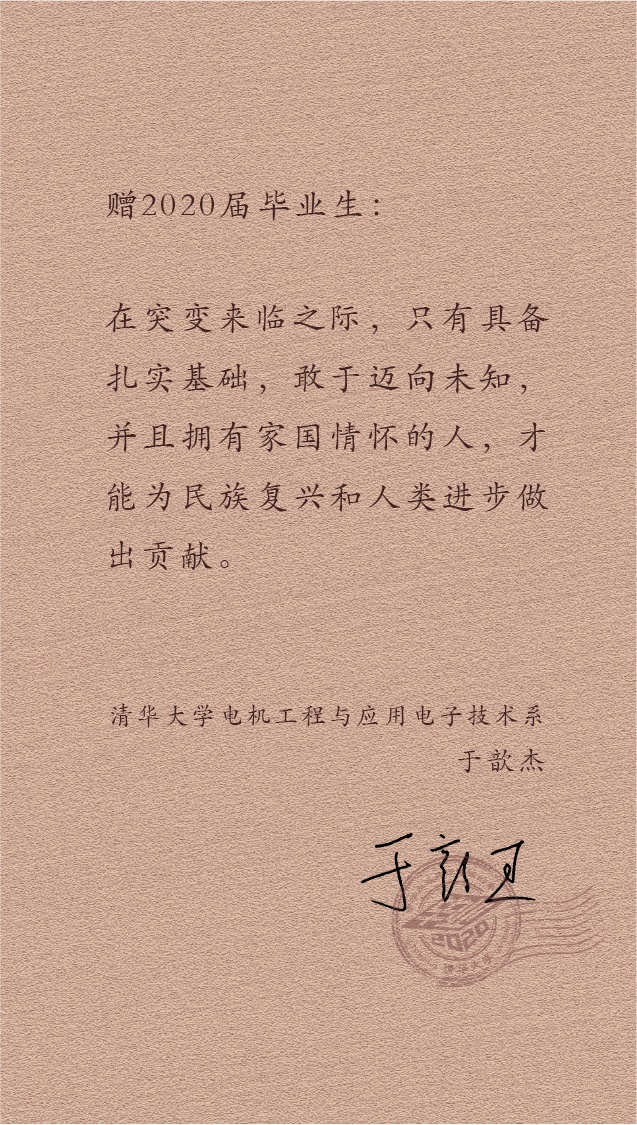 赠2020届毕业生：
在突变来临之际，只有具备
扎实基础，敢于迈向未知，
并且拥有家国情怀的人，才
能为民族复兴和人类进步做
出贡献。
清华大学电机工程与应用电子技术系
于歆杰
于歆杰
2020
清华大学